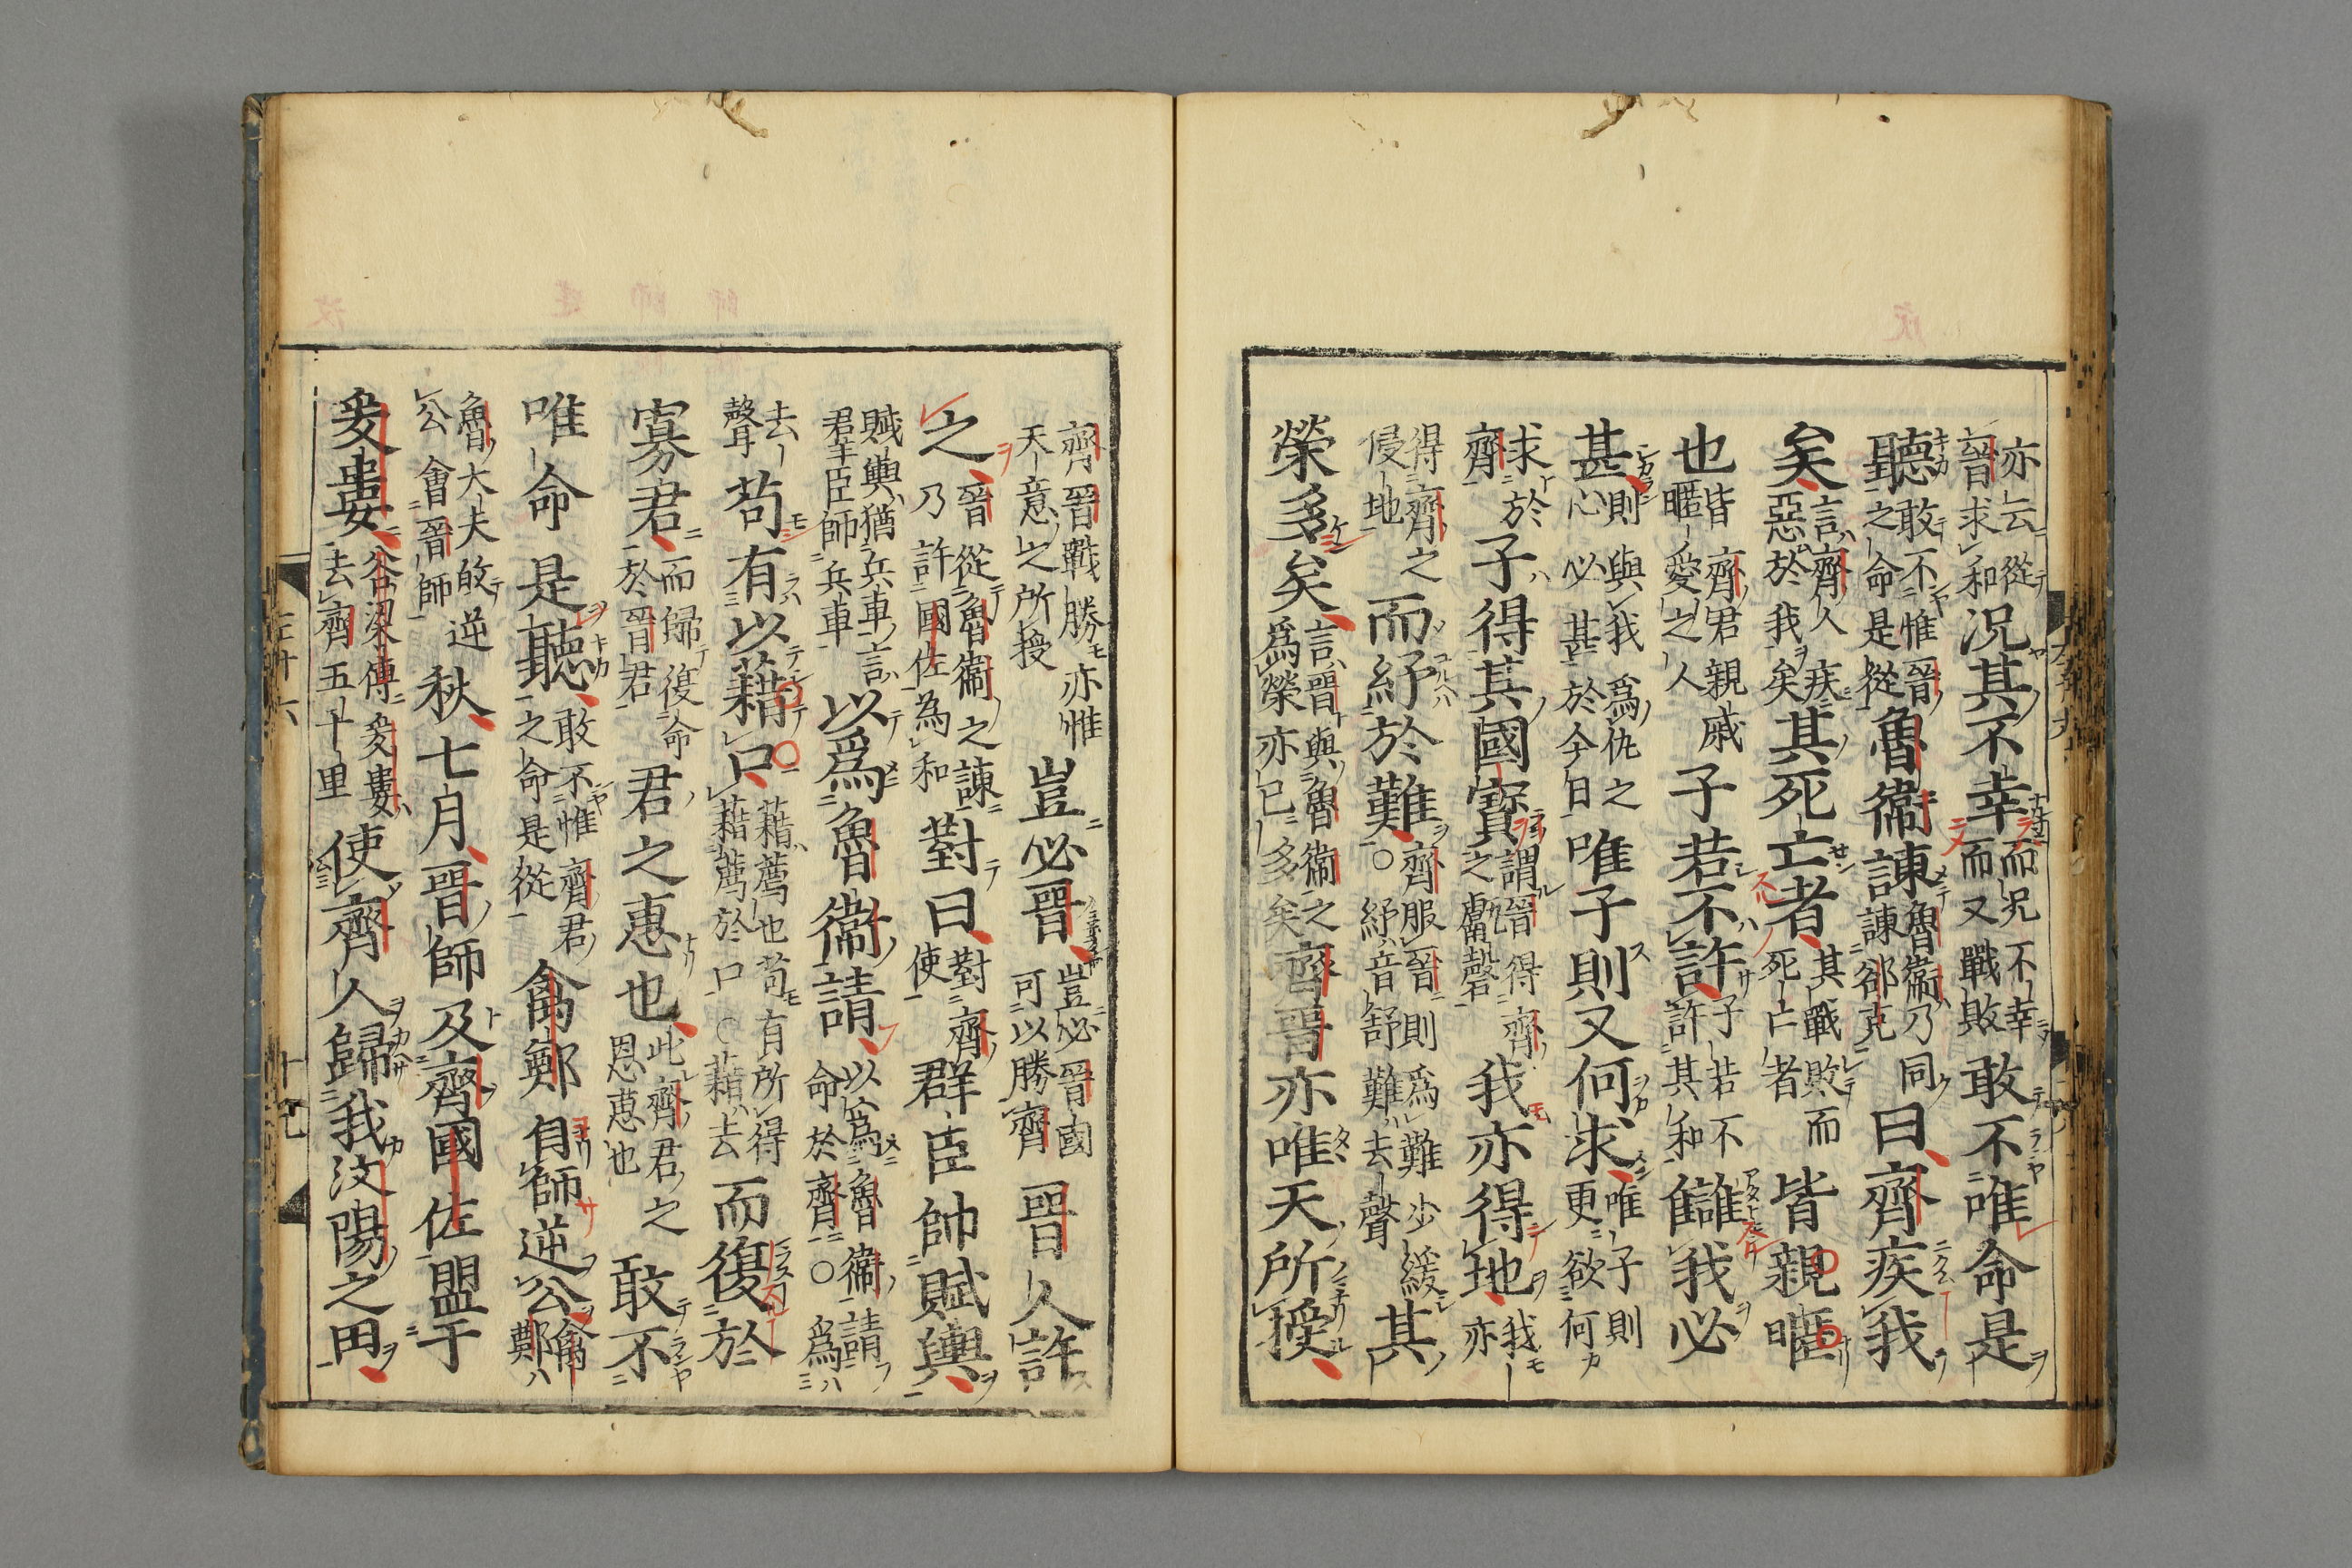 亦云從晉求和況其不幸而況不幸而又戰敗敢不唯命是
聽敢不惟晉之命是從魯衞諫魯衞乃同諫郤克曰齊疾我
矣言齊人疾惡於我矣其死亡者其戰敗而死亡者皆親暱
也皆齊君親戚暱愛之人子若不許子若不許其和讎我必
甚則與我爲仇之心必甚於今日唯子則又何求唯子則更欲何
求於齊子得其國寶謂晉得齊之甗磬我亦得地我亦
得齊之侵地而紓於難○齊服晉則爲難少緩紓音舒難去聲其
榮多矣言晉與魯衞之爲榮亦已多矣齊晉亦唯天所授
齊晉戰勝亦惟天意之所授豈必晉豈必晉國可以勝齊晉人許
之晉從魯衞之諫乃許國佐爲和對曰對齊使群臣帥賦輿
賦輿猶兵車言君羣臣師兵車以爲魯衞請以爲魯衞請命於齊○爲
去聲苟有以藉口藉薦也苟有所得藉薦於口○藉去而復於
寡君而歸復命於晉君君之惠也此齊君之恩惠也敢不
唯命是聽敢不惟齊君之命是從禽鄭自師逆公禽鄭
魯大夫故逆公會晉師秋七月晉師及齊國佐盟于
爰婁穀梁傳爰婁去齊五十里使齊人歸我汶陽之田
左十六
十九